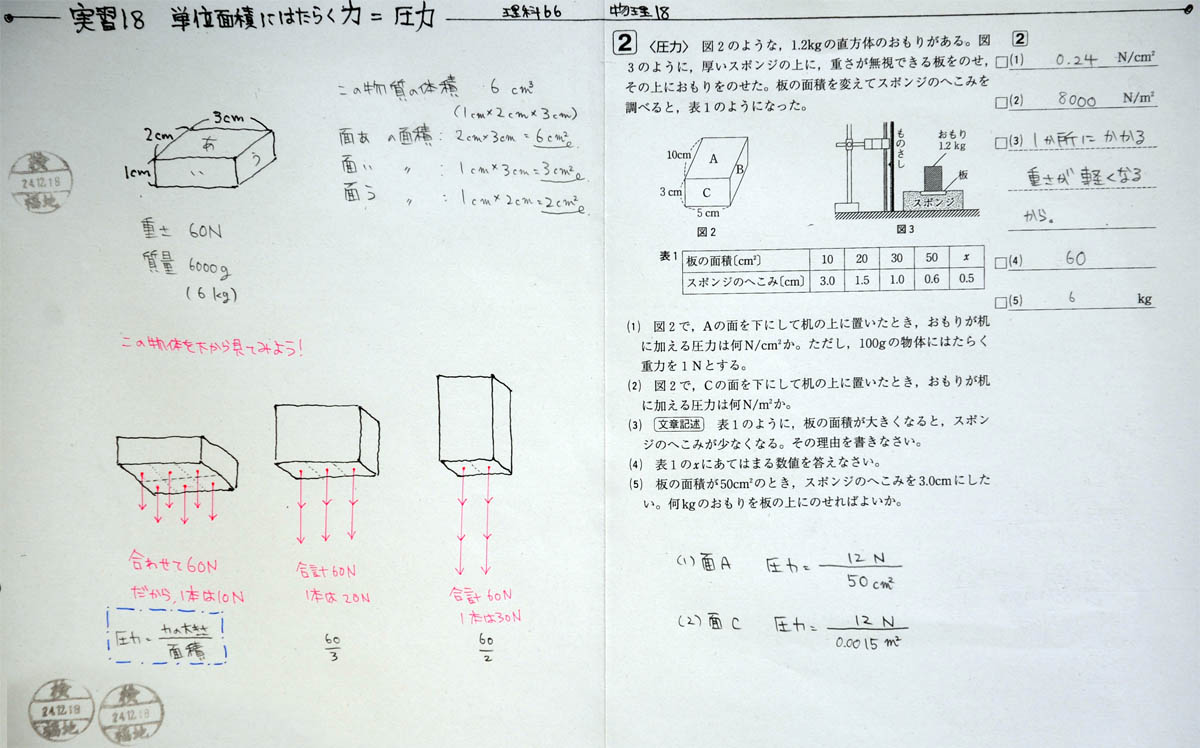 実習18 単位面積にはたらく力 = 圧力
理科66
物理18
この物質の体積 6 cm³
(1cm×2cm×3cm)
面あの面積 : 2cm×3cm = 6cm²
面い 〃 : 1cm×3cm = 3cm²
面う 〃 : 1cm×2cm = 2cm²
3cm
2cm
1cm
あ
い
う
検
24.12.18
福地
重さ 60N
質量 6000g
(6kg)
この物体を下から見てみよう!
合わせて60N
だから、1本は10N
合計60N
1本は20N
合計60N
1本は30N
圧力 = 力の大きさ/面積
60/3
60/2
検
24.12.18
福地
検
24.12.18
福地
2 〈圧力〉 図2のような,1.2kgの直方体のおもりがある。図
3のように,厚いスポンジの上に,重さが無視できる板をのせ,
その上におもりをのせた。板の面積を変えてスポンジのへこみを
調べると,表1のようになった。
10cm
3cm
5cm
A
B
C
図2
ものさし
おもり
1.2kg
板
スポンジ
図3
表1
板の面積〔cm²〕 10 20 30 50 x
スポンジのへこみ〔cm〕 3.0 1.5 1.0 0.6 0.5
(1) 図2で,Aの面を下にして机の上に置いたとき,おもりが机
に加える圧力は何N/cm²か。ただし,100gの物体にはたらく
重力を1Nとする。
(2) 図2で,Cの面を下にして机の上に置いたとき,おもりが机
に加える圧力は何N/m²か。
(3) 文章記述 表1のように,板の面積が大きくなると,スポン
ジのへこみが少なくなる。その理由を書きなさい。
(4) 表1のxにあてはまる数値を答えなさい。
(5) 板の面積が50cm²のとき,スポンジのへこみを3.0cmにした
い。何kgのおもりを板の上にのせればよいか。
(1) 面A 圧力 = 12 N/50 cm²
(2) 面C 圧力 = 12 N/0.0015 m²
2
(1) 0.24 N/cm²
(2) 8000 N/m²
(3) 1か所にかかる
重さが軽くなる
から。
(4) 60
(5) 6 kg